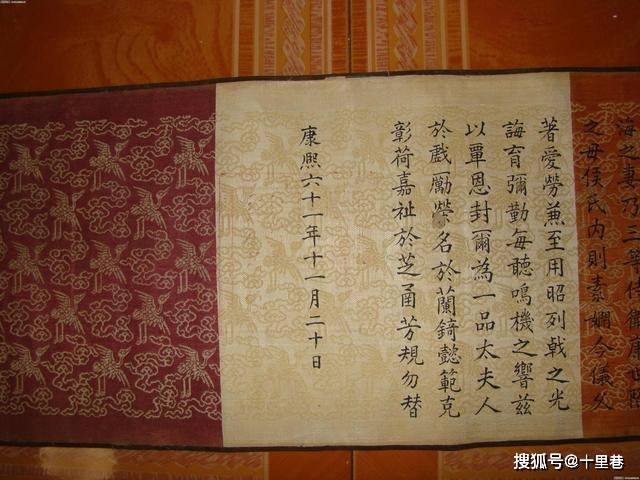 海之妻乃三等侍衛
之母侯氏内則素嫻今儀父
著愛勞兼至用昭列戟之光
誨育彌勤每聽鳴機之響茲
以覃恩封爾為一品太夫人
於戲勵榮名於蘭錡懿範克
彰荷嘉祉於芝甬芳規勿替
康熙六十一年十一月二十日
搜狐号@十里巷